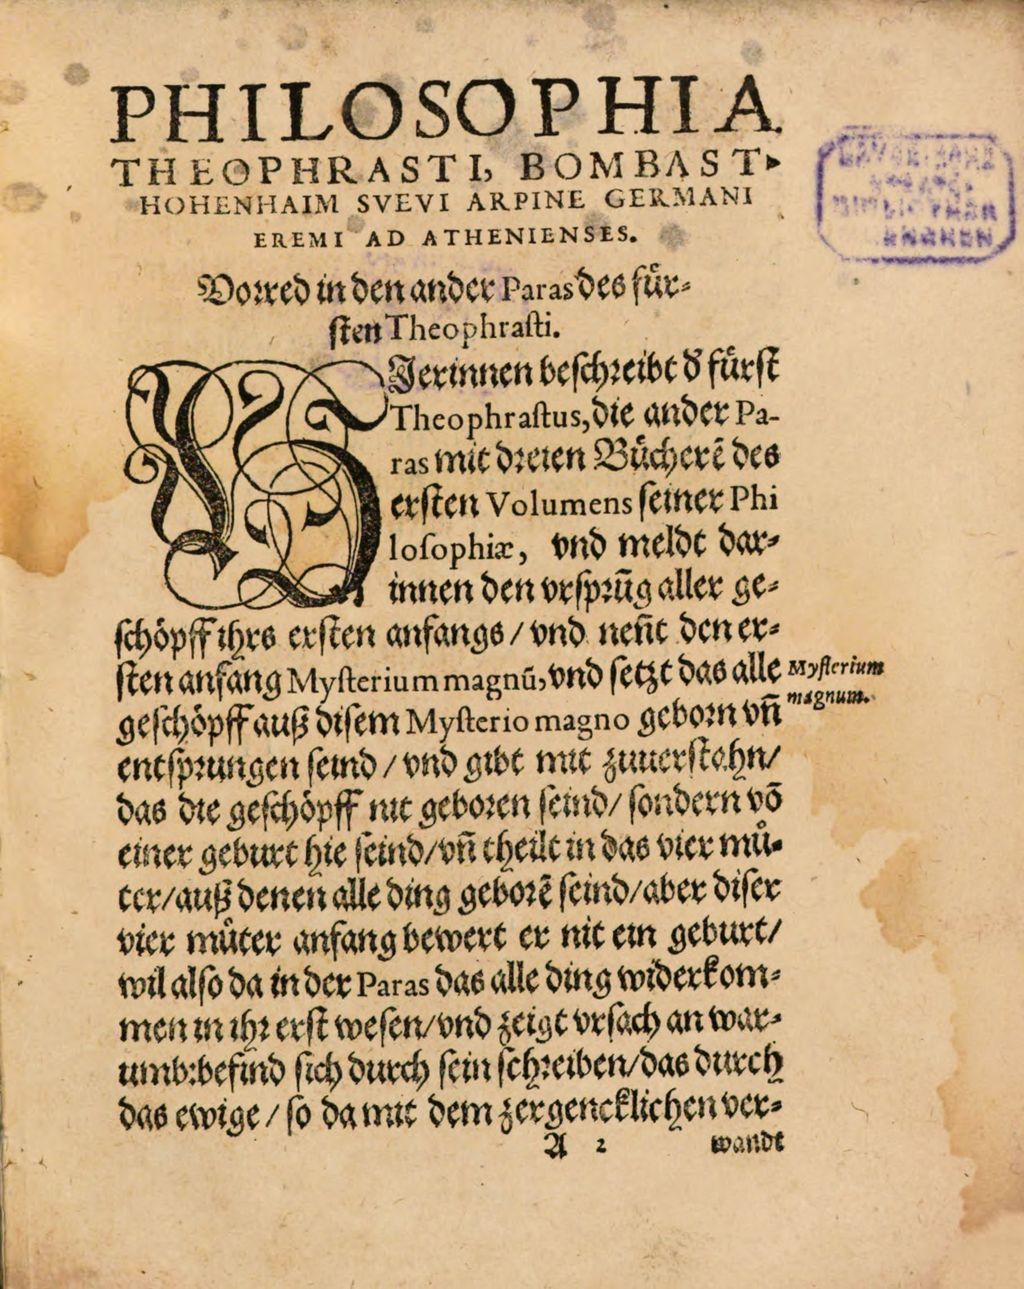 PHILOSOPHIA
THEOPHRASTI, BOMBAST⸗
HOHENHAIM SVEVI ARPINE GERMANI
EREMI AD ATHENIENSES.
Vorred in den ander Paras des fuͤr⸗
ſten Theophraſti.
HJerinnen beſchreibt d' fuͤrſt
Theophraſtus, die ander Pa-
ras mit dreien Buͤcherẽ des
erſten Volumens ſeiner Phi
loſophiæ, vnd meldt dar⸗
innen den vrſprũg aller ge⸗
ſchoͤpff ihrs erſten anfangs / vnd neñt den er⸗
ſten anfang Myſterium magnũ, vnd ſetzt das alle
geſchoͤpff auß diſem Myſterio magno geborn vñ
entſprungen ſeind / vnd gibt mit zuuerſtehn /
das die geſchoͤpff nit geboren ſeind / ſondern võ
einer geburt hie ſeind / vñ theilt in das vier muͦ⸗
ter / auß denen alle ding geborẽ ſeind / aber diſer
vier muͦter anfang bewert er nit ein geburt /
wil alſo da in der Paras das alle ding widerkom⸗
men in ihr erſt weſen / vnd zeigt vrſach an war⸗
umb: befind ſich durch ſein ſchreiben / das durch
das ewige / ſo da mit dem zergencklichen ver⸗
A 2 wandt
Myſterium
magnum.